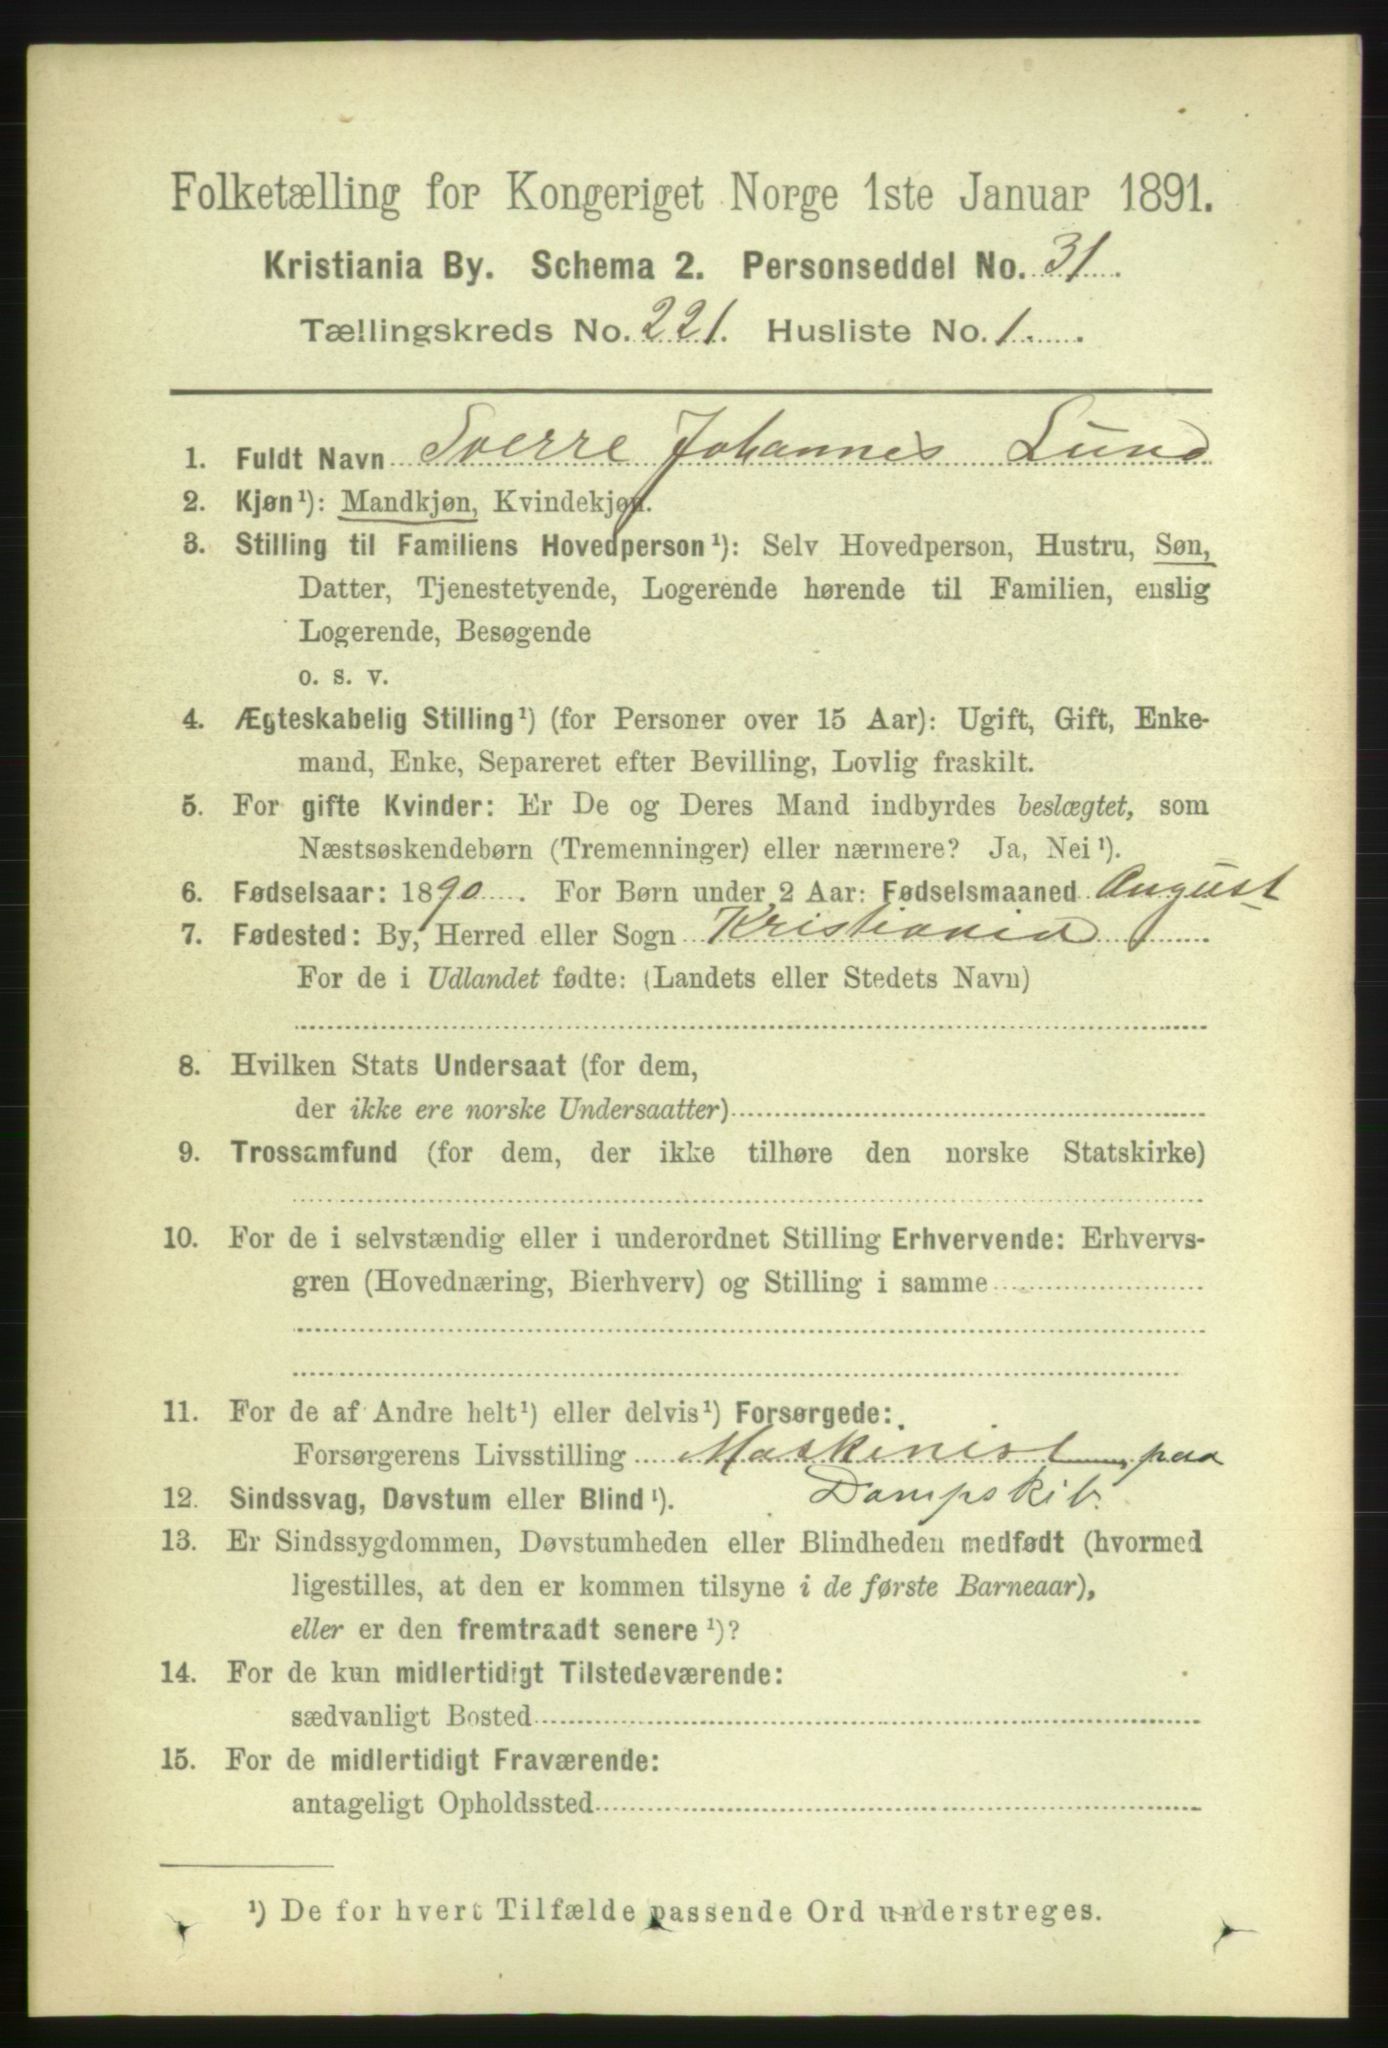 Folketælling for Kongeriget Norge 1ste Januar 1891.
Kristiania By. Schema 2. Personseddel No. 31
Tællingskreds No. 221. Husliste No. 1
1. Fuldt Navn Sverre Johannes Lund
2. Kjøn¹): Mandkjøn, Kvindekjøn.
3. Stilling til Familiens Hovedperson¹): Selv Hovedperson, Hustru, Søn,
Datter, Tjenestetyende, Logerende hørende til Familien, enslig
Logerende, Besøgende
o. s. v.
4. Ægteskabelig Stilling¹) (for Personer over 15 Aar): Ugift, Gift, Enke-
mand, Enke, Separeret efter Bevilling, Lovlig fraskilt.
5. For gifte Kvinder: Er De og Deres Mand indbyrdes beslægtet, som
Næstsøskendebørn (Tremenninger) eller nærmere? Ja, Nei¹).
6. Fødselsaar: 1890. For Børn under 2 Aar: Fødselsmaaned August
7. Fødested: By, Herred eller Sogn Kristiania
For de i Udlandet fødte: (Landets eller Stedets Navn)
8. Hvilken Stats Undersaat (for dem,
der ikke ere norske Undersaatter)
9. Trossamfund (for dem, der ikke tilhøre den norske Statskirke)
10. For de i selvstændig eller i underordnet Stilling Erhvervende: Erhvervs-
gren (Hovednæring, Bierhverv) og Stilling i samme
11. For de af Andre helt¹) eller delvis¹) Forsørgede:
Forsørgerens Livsstilling Maskinist paa
12. Sindssvag, Døvstum eller Blind¹). Dampskib.
13. Er Sindssygdommen, Døvstumheden eller Blindheden medfødt (hvormed
ligestilles, at den er kommen tilsyne i de første Barneaar),
eller er den fremtraadt senere¹)?
14. For de kun midlertidigt Tilstedeværende:
sædvanligt Bosted
15. For de midlertidigt Fraværende:
antageligt Opholdssted
¹) De for hvert Tilfælde passende Ord understreges.